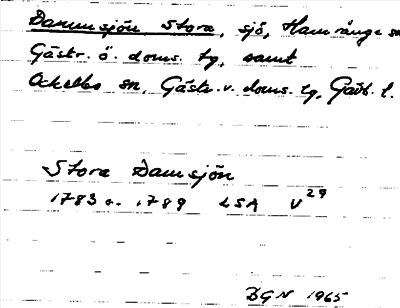 Dammsjön Stora, sjö, Hamrånge sn
Gästr. ö. doms. tg, samt
Ockelbo sn, Gästr. v. doms. tg, Gävb. l.
Stora Damsjön
1783 o. 1789 LSA V29
DGN 1965